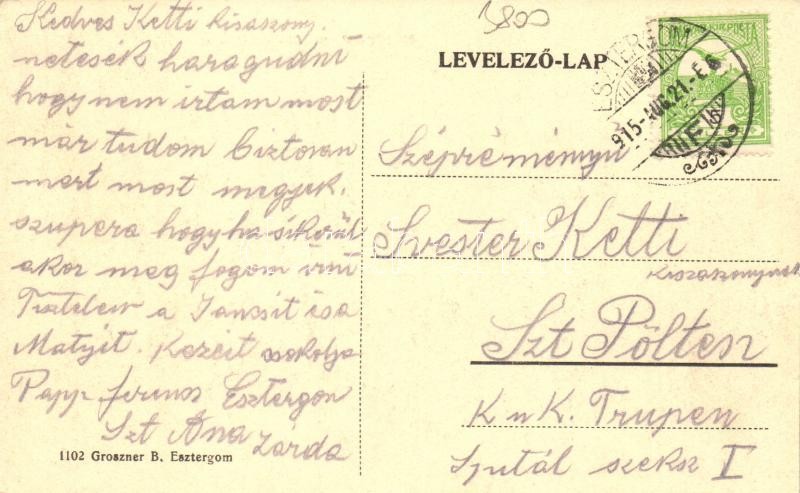 3800
Kedves Ketti kisaszony.
netesék haragudni
hogy nem irtam most
már tudom biztosan
mert most megyek.
szupera hogy ha sikerül
akor meg fogom irni
Tisztelem a Jancsit ésa
Matyit. Kezeit csokolja
Papp ferenc Esztergon
Szt Ana zárda
1102 Groszner B. Esztergom
LEVELEZŐ-LAP
ESZTERGOM
915-AUG.21.-E.6
Szépreményü
Svester Ketti
kiszaszonynak
Szt Pölten
K u K. Trupen
Sputál szeksz I